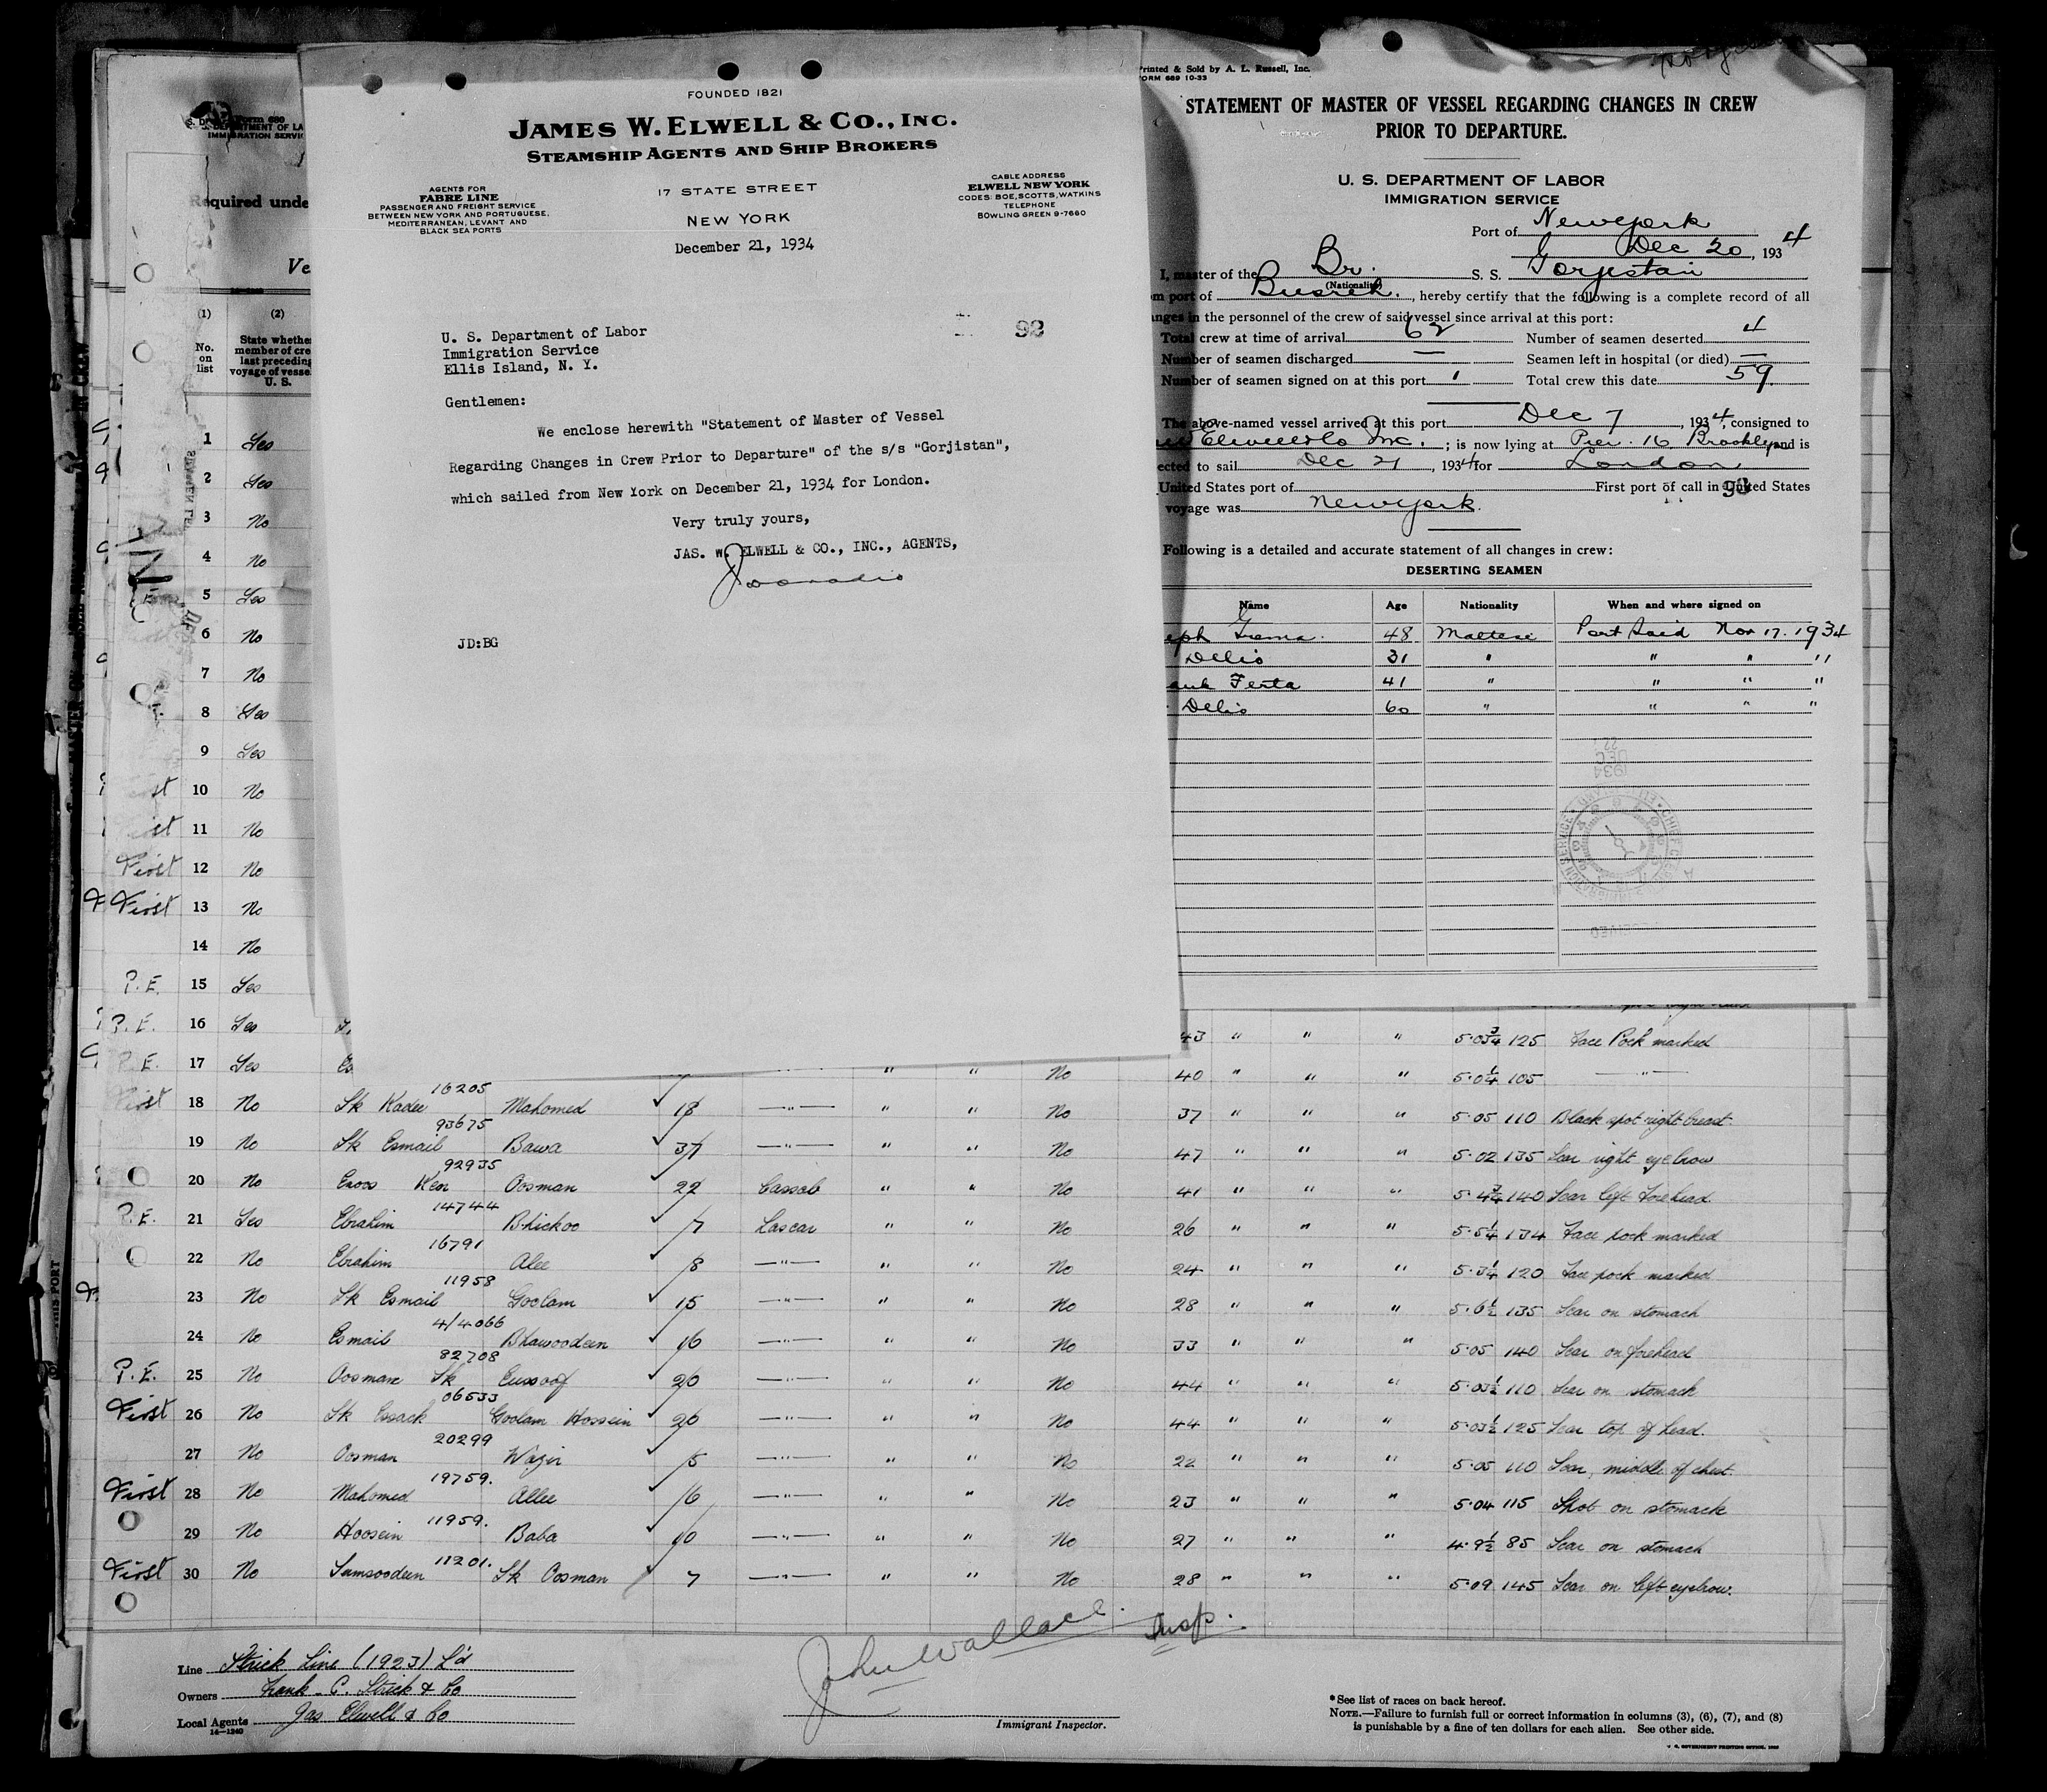 FOUNDED 1821
JAMES W. ELWELL & CO., INC.
STEAMSHIP AGENTS AND SHIP BROKERS
AGENTS FOR
FABRE LINE
PASSENGER AND FREIGHT SERVICE
BETWEEN NEW YORK AND PORTUGUESE,
MEDITERRANEAN, LEVANT AND
BLACK SEA PORTS
17 STATE STREET
NEW YORK
CABLE ADDRESS
ELWELL NEW YORK
CODES: BOE, SCOTTS, WATKINS
TELEPHONE
BOWLING GREEN 9-7660
December 21, 1934
98
U. S. Department of Labor
Immigration Service
Ellis Island, N. Y.
Gentlemen:
We enclose herewith "Statement of Master of Vessel
Regarding Changes in Crew Prior to Departure" of the s/s "Gorjistan",
which sailed from New York on December 21, 1934 for London.
Very truly yours,
JAS. W. ELWELL & CO., INC., AGENTS,
JD:BG
Printed & Sold by A. L. Russell, Inc.
FORM 689 10-33
STATEMENT OF MASTER OF VESSEL REGARDING CHANGES IN CREW
PRIOR TO DEPARTURE.
U. S. DEPARTMENT OF LABOR
IMMIGRATION SERVICE
Port of New York
Dec 20, 1934
I, master of the Br. S. S. Gorjistan
(Nationality)
port of Busreh, hereby certify that the following is a complete record of all
in the personnel of the crew of said vessel since arrival at this port:
Total crew at time of arrival 62 Number of seamen deserted 4
Number of seamen discharged — Seamen left in hospital (or died) —
Number of seamen signed on at this port 1 Total crew this date 59.
The above-named vessel arrived at this port Dec 7, 1934, consigned to
Elwell & Co Inc.; is now lying at Pier 16 Brooklyn and is
to sail Dec 21, 1934 for London
United States port of First port of call in United States
98
voyage was New York.
Following is a detailed and accurate statement of all changes in crew:
DESERTING SEAMEN
Name Age Nationality When and where signed on
Grema 48 Maltese Port Said Nov 17. 1934
Dellio 31 " " " "
Ferta 41 " " " "
Dellio 60 " " " "
Form 680
IMMIGRATION SERVIC
Required unde
Ve
(1) (2)
No. on list
State whether
member of cre
last preceding
voyage of vesse
U. S.
1 Yes
2 Yes
3 No
4 No
5 Yes
6 No
7 No
8 Yes
9 Yes
10 No
11 No
First 12 No
First 13 No
14 No
P.E. 15 Yes
P.E. 16 Yes 43 " " " 5·03¾ 125 Face Pock marked
P.E. 17 Yes " " No 40 " " " 5·0¼ 105 —"—
16205
First 18 No Sk Kadee Mahomed 18 —"— " " No 37 " " " 5·05 110 Black spot right breast
93675
19 No Sk Esmail Bawa 37 —"— " " No 47 " " " 5·02 135 Scar right eyebrow
92935
20 No Oosman 22 Cassab " " No 41 " " " 5·4¾ 140 Scar left forehead.
14744
P.E. 21 Yes Ebrahim Bhickoo 7 Lascar " " No 26 " " " 5·5¼ 134 Face pock marked
16791
22 No Ebrahim Alee 8 —"— " " No 24 " " " 5·3¼ 120 Face pock marked
11958
23 No Sk Esmail Goolam 15 —"— " " No 28 " " " 5·6½ 135 Scar on stomach
4/4066
24 No Esmail Bhawoodeen 16 —"— " " No 33 " " " 5·05 140 Scar on forehead
82708
P.E. 25 No Oosman Sk Eussoof 20 —"— " " No 44 " " " 5·03½ 110 Scar on stomach
06533
First 26 No Sk Essack Goolam Hossein 20 —"— " " No 44 " " " 5·03½ 125 Scar top of head.
20299
27 No Oosman Wazir 5 —"— " " No 22 " " " 5·05 110 Scar, middle of chest.
19759.
First 28 No Mahomed Allee 6 —"— " " No 23 " " " 5·04 115 Spot on stomack
11959.
29 No Hoosein Baba 10 —"— " " No 27 " " " 4·9½ 85 Scar on stomach
11201.
First 30 No Samsoodeen Sk Oosman 7 —"— " " No 28 " " " 5·09 145 Scar on left eyebrow.
Line Strick Line (1923) Ld
Owners Frank C. Strick & Co
Local Agents Jas Elwell & Co
14—1240
John Wallace. Insp.
Immigrant Inspector.
*See list of races on back hereof.
NOTE.—Failure to furnish full or correct information in columns (3), (6), (7), and (8)
is punishable by a fine of ten dollars for each alien. See other side.